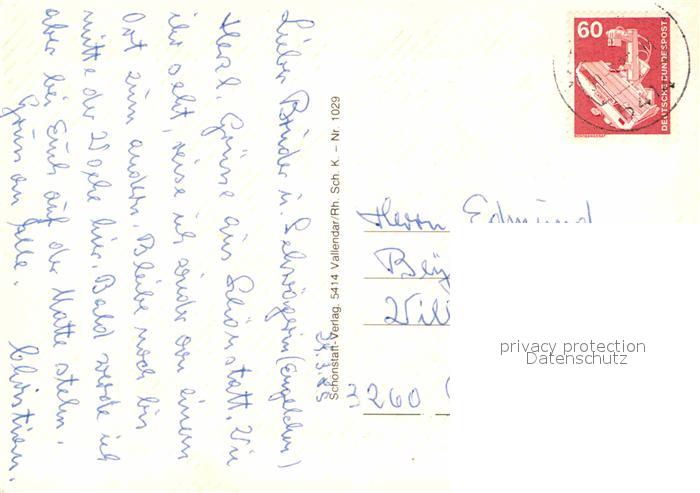 Lieber Bruder u. Schwägerin (Engelchen)
Herzl. Grüsse aus Schönstatt. Wie
ihr seht, reise ich wieder von einem
Ort zum andern. Bleibe noch bis
mitte der Woche hier. Bald werde ich
aber bei Euch auf der Matte stehn.
Gruss an alle.
Christian.
Schönstatt-Verlag, 5414 Vallendar/Rh. Sch. K. – Nr. 1029
60
DEUTSCHE BUNDESPOST
Herrn Edmund
3260
privacy protection
Datenschutz